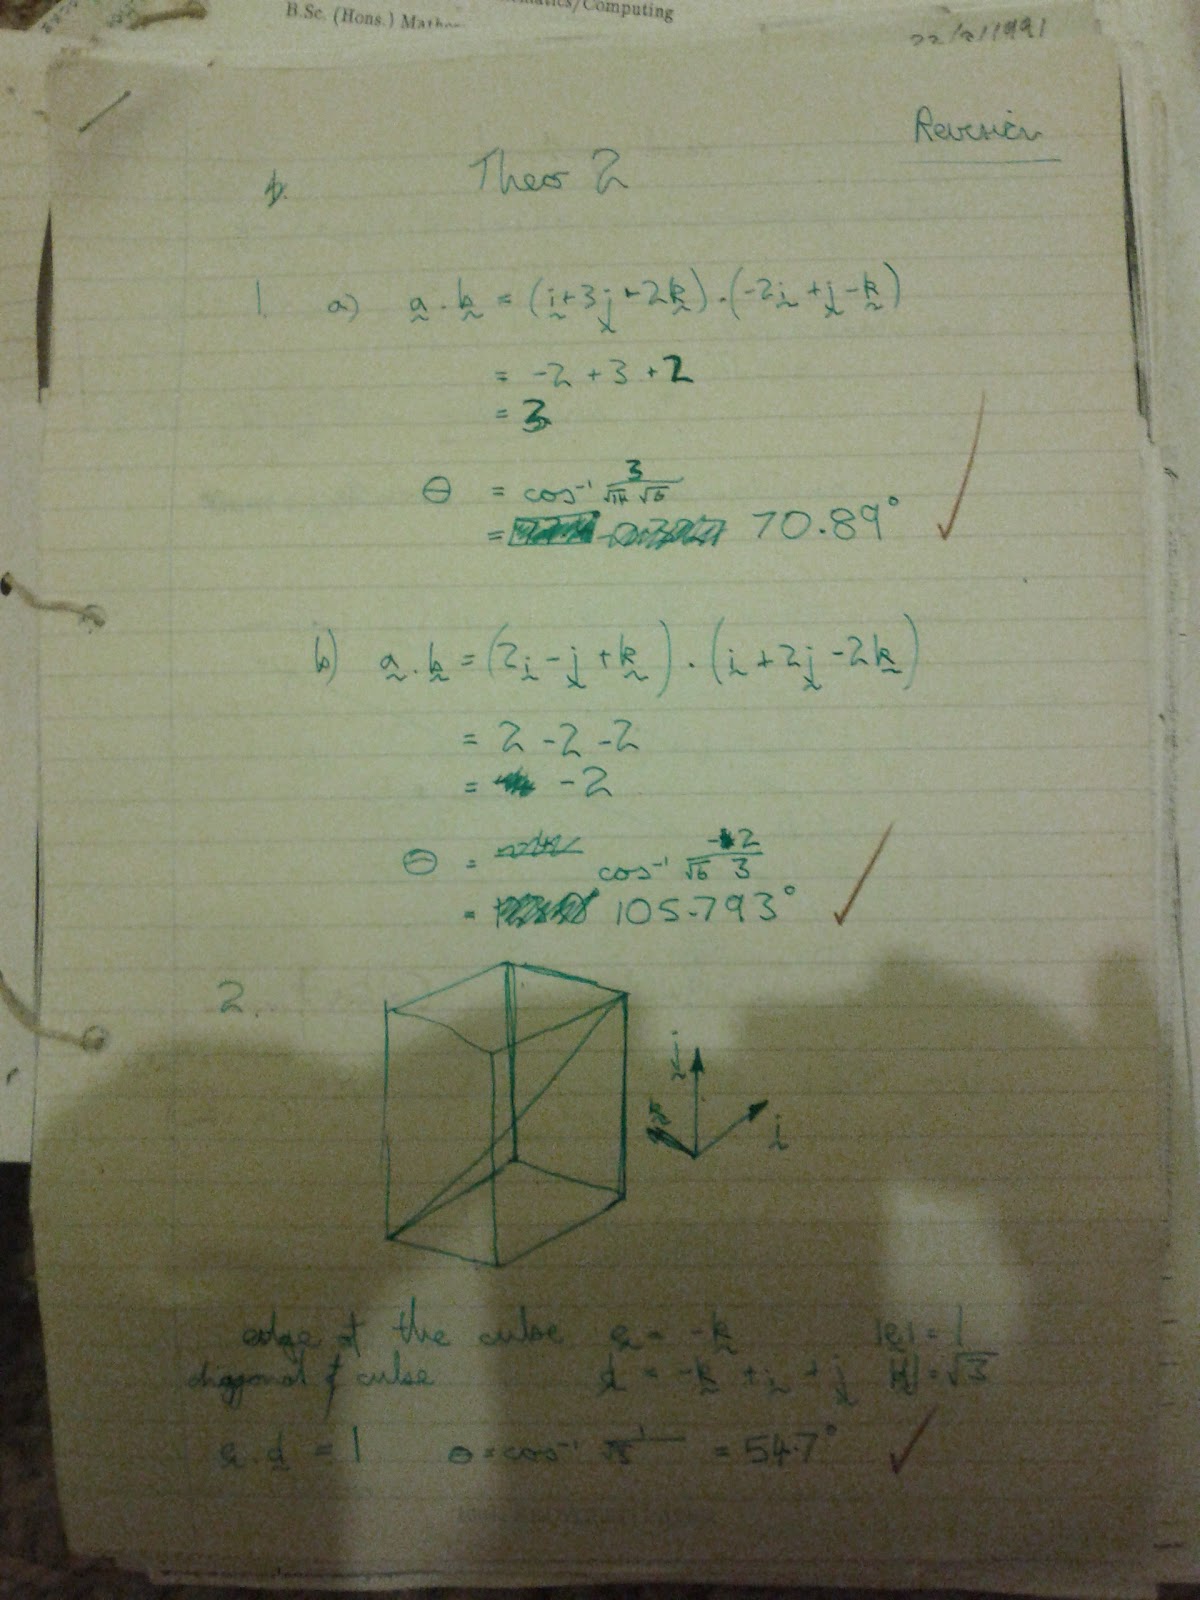 B.Sc. (Hons.) Mathe
matics/Computing
22/2/1991
Revision
b.
Theo 2
1. a) a . b = (i+3j-2k) . (-2i+j-k)
= -2 + 3 + 2
= 3
θ = cos⁻¹ 3/(√14 √6)
= 70.89°
b) a . b = (2i-j+k) . (i+2j-2k)
= 2 -2 -2
= -2
θ = cos⁻¹ -2/(√6 3)
= 105.793°
2.
j
i
edge of the cube e = -k |e| = 1
diagonal of cube d = -k + i + j |d| = √3
e . d = 1 θ = cos⁻¹ 1/√3 = 54.7°